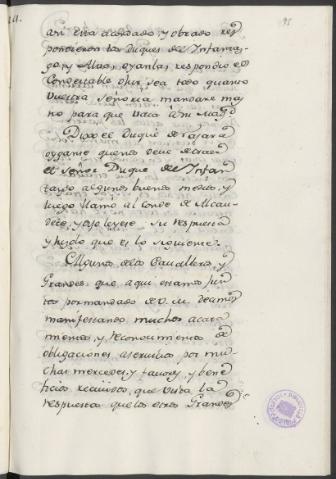 asi está acordado, y obrado res
pondieron los Duques del Infantaz
go, y Alva, oyanlas, respondio el
Condestable oliz, sea todo quanto
vuestra Señoria mandare
no para que vaca á su Magd
Dixo el Duque de Najara
oyganse quanos deue de traer
el señor Duque de Infan
tazgo algunos buenos medios, y
luego llamó al Conde de Alcau
dete, y dixo lo vese su respuesta
y leydo que es lo siguiente.
Algunos de los Cavalleros, y
Grandes, que aqui estamos jun
tos por mandado de V. M. decimos
manifestando muchos acata
mientos, y reconocimiento de
obligaciones a servilla por mu
chas mercedes, y favores, y bene
ficios recividos, que vista la
respuesta que los otros Grandes